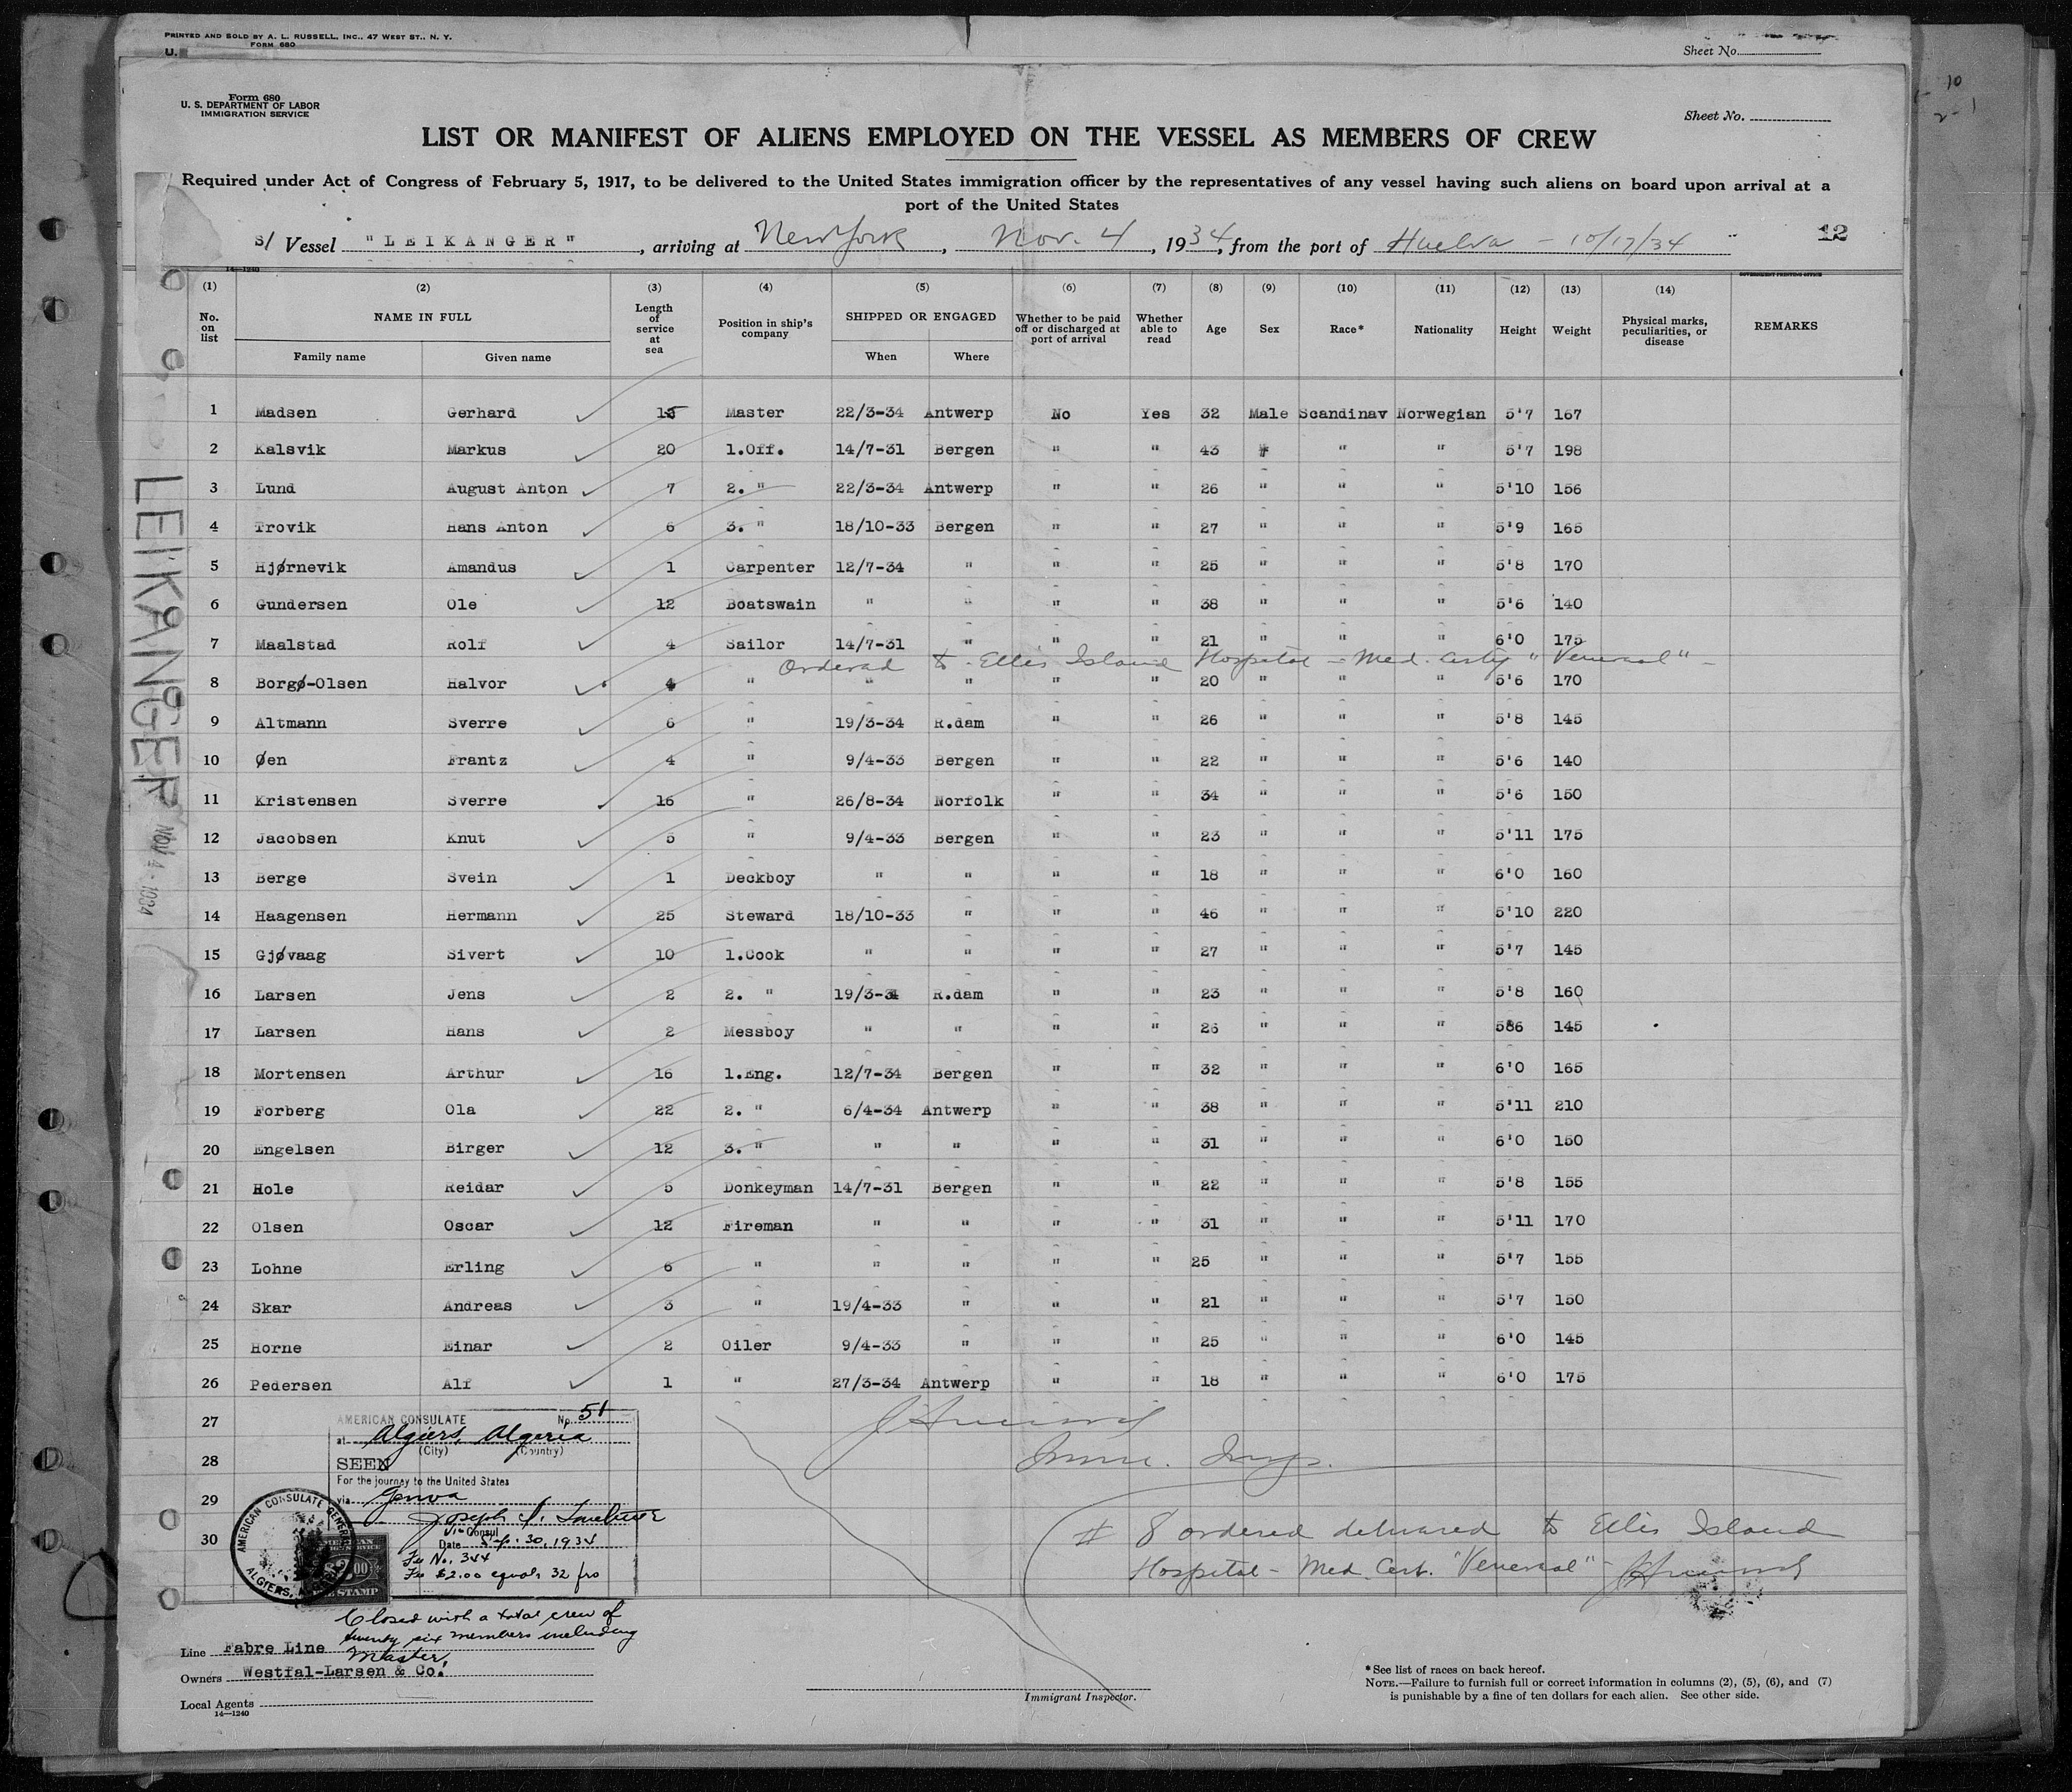 PRINTED AND SOLD BY A. L. RUSSELL, INC., 47 WEST ST., N. Y.
FORM 680
U.
Sheet No.
10
2-1
Form 680
U. S. DEPARTMENT OF LABOR
IMMIGRATION SERVICE
Sheet No.
LIST OR MANIFEST OF ALIENS EMPLOYED ON THE VESSEL AS MEMBERS OF CREW
Required under Act of Congress of February 5, 1917, to be delivered to the United States immigration officer by the representatives of any vessel having such aliens on board upon arrival at a
port of the United States
S/ Vessel "LEIKANGER", arriving at New York, Nov. 4, 1934, from the port of Huelva - 10/17/34
12
14—1240
GOVERNMENT PRINTING OFFICE
(1) (2) (3) (4) (5) (6) (7) (8) (9) (10) (11) (12) (13) (14)
No. on list NAME IN FULL Length of service at sea Position in ship's company SHIPPED OR ENGAGED Whether to be paid off or discharged at port of arrival Whether able to read Age Sex Race* Nationality Height Weight Physical marks, peculiarities, or disease REMARKS
Family name Given name When Where
1 Madsen Gerhard 15 Master 22/3-34 Antwerp No Yes 32 Male Scandinav Norwegian 5'7 167
2 Kalsvik Markus 20 1.Off. 14/7-31 Bergen " " 43 " " " 5'7 198
3 Lund August Anton 7 2. " 22/3-34 Antwerp " " 26 " " " 5'10 156
4 Trovik Hans Anton 6 3. " 18/10-33 Bergen " " 27 " " " 5'9 165
5 Hjørnevik Amandus 1 Carpenter 12/7-34 " " " 25 " " " 5'8 170
6 Gundersen Ole 12 Boatswain " " " " 38 " " " 5'6 140
7 Maalstad Rolf 4 Sailor 14/7-31 " " " 21 " " " 6'0 175
Ordered to Ellis Island Hospital - Med. Certif "Venereal" -
8 Borgø-Olsen Halvor 4 " " " " " 20 " " " 5'6 170
9 Altmann Sverre 6 " 19/3-34 R.dam " " 26 " " " 5'8 145
10 Øen Frantz 4 " 9/4-33 Bergen " " 22 " " " 5'6 140
11 Kristensen Sverre 16 " 26/8-34 Norfolk " " 34 " " " 5'6 150
12 Jacobsen Knut 5 " 9/4-33 Bergen " " 23 " " " 5'11 175
13 Berge Svein 1 Deckboy " " " " 18 " " " 6'0 160
14 Haagensen Hermann 25 Steward 18/10-33 " " " 46 " " " 5'10 220
15 Gjøvaag Sivert 10 1.Cook " " " " 27 " " " 5'7 145
16 Larsen Jens 2 2. " 19/3-34 R.dam " " 23 " " " 5'8 160
17 Larsen Hans 2 Messboy " " " " 26 " " " 586 145
18 Mortensen Arthur 16 1.Eng. 12/7-34 Bergen " " 32 " " " 6'0 165
19 Forberg Ola 22 2. " 6/4-34 Antwerp " " 38 " " " 5'11 210
20 Engelsen Birger 12 3. " " " " " 31 " " " 6'0 150
21 Hole Reidar 5 Donkeyman 14/7-31 Bergen " " 22 " " " 5'8 155
22 Olsen Oscar 12 Fireman " " " " 31 " " " 5'11 170
23 Lohne Erling 6 " " " " " 25 " " " 5'7 155
24 Skar Andreas 3 " 19/4-33 " " " 21 " " " 5'7 150
25 Horne Einar 2 Oiler 9/4-33 " " " 25 " " " 6'0 145
26 Pedersen Alf 1 " 27/3-34 Antwerp " " 18 " " " 6'0 175
27
28
29
30
LEIKANGER
NOV 4 - 1934
AMERICAN CONSULATE No. 51
at Algiers, Algeria
(City) (Country)
SEEN
For the journey to the United States
via Genoa
Joseph I.
Vice Consul
Date Sep. 30, 1934
Fee No. 344
Fee $2.00 equals 32 frs
AMERICAN CONSULATE GENERAL
ALGIERS, ALGERIA
$2.00
FEE STAMP
Imm. Insp.
# 8 ordered delivered to Ellis Island
Hospital - Med. Cert. "Venereal" -
Closed with a total crew of
twenty six members including
Master.
Line Fabre Line
Owners Westfal-Larsen & Co.
Local Agents
14—1240
Immigrant Inspector.
*See list of races on back hereof.
NOTE.—Failure to furnish full or correct information in columns (2), (5), (6), and (7)
is punishable by a fine of ten dollars for each alien. See other side.